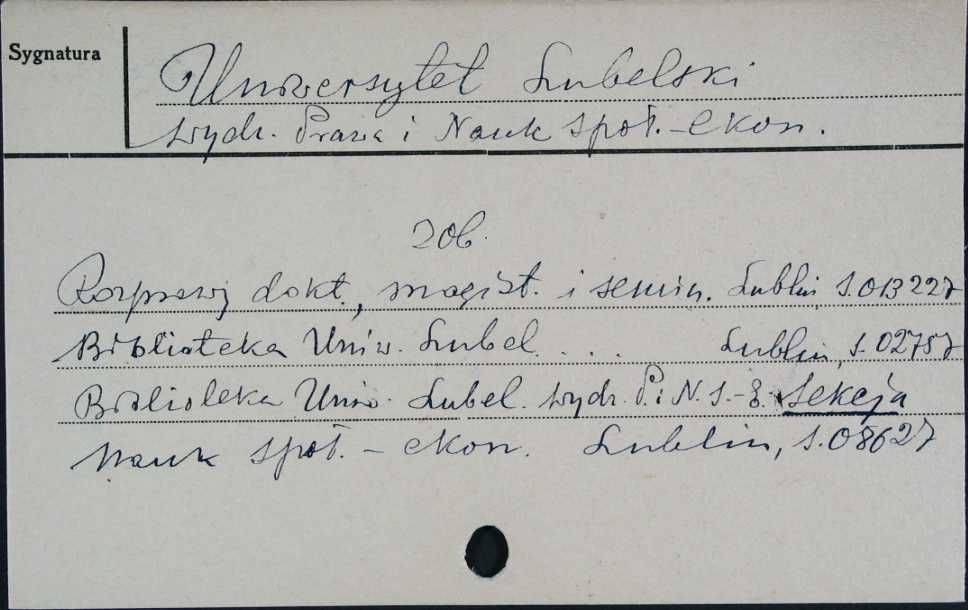 Sygnatura
Uniwersytet Lubelski
wydz. Prawa i Nauk społ.-ekon.
zob.
Rozprawy dokt., magist. i semin. Lublin S.013227
Biblioteka Uniw. Lubel. ... Lublin, S.02757
Biblioteka Uniw. Lubel. wydz. P. i N. S.-E. Sekcja
Nauk społ. - ekon. Lublin, S.08627